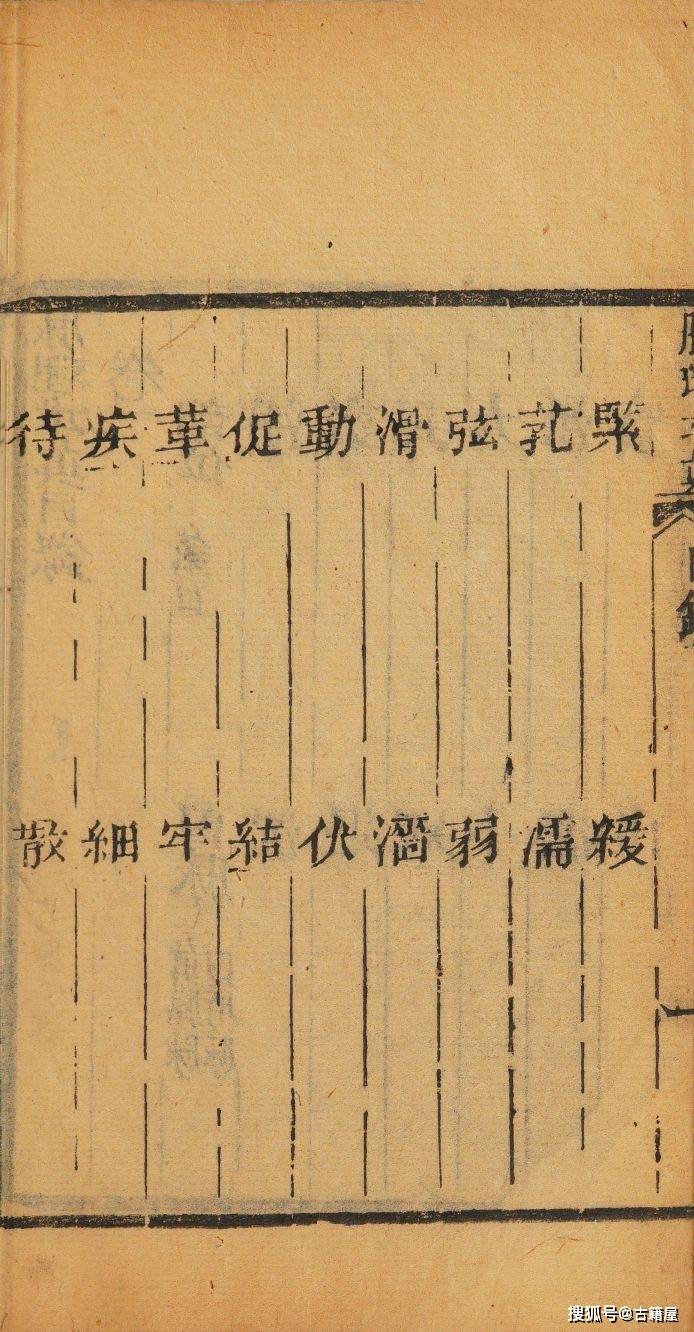 緊　緩
芤　濡
弦　弱
滑　濇
動　伏
促　結
革　牢
疾　細
待　散
搜狐号@古籍屋